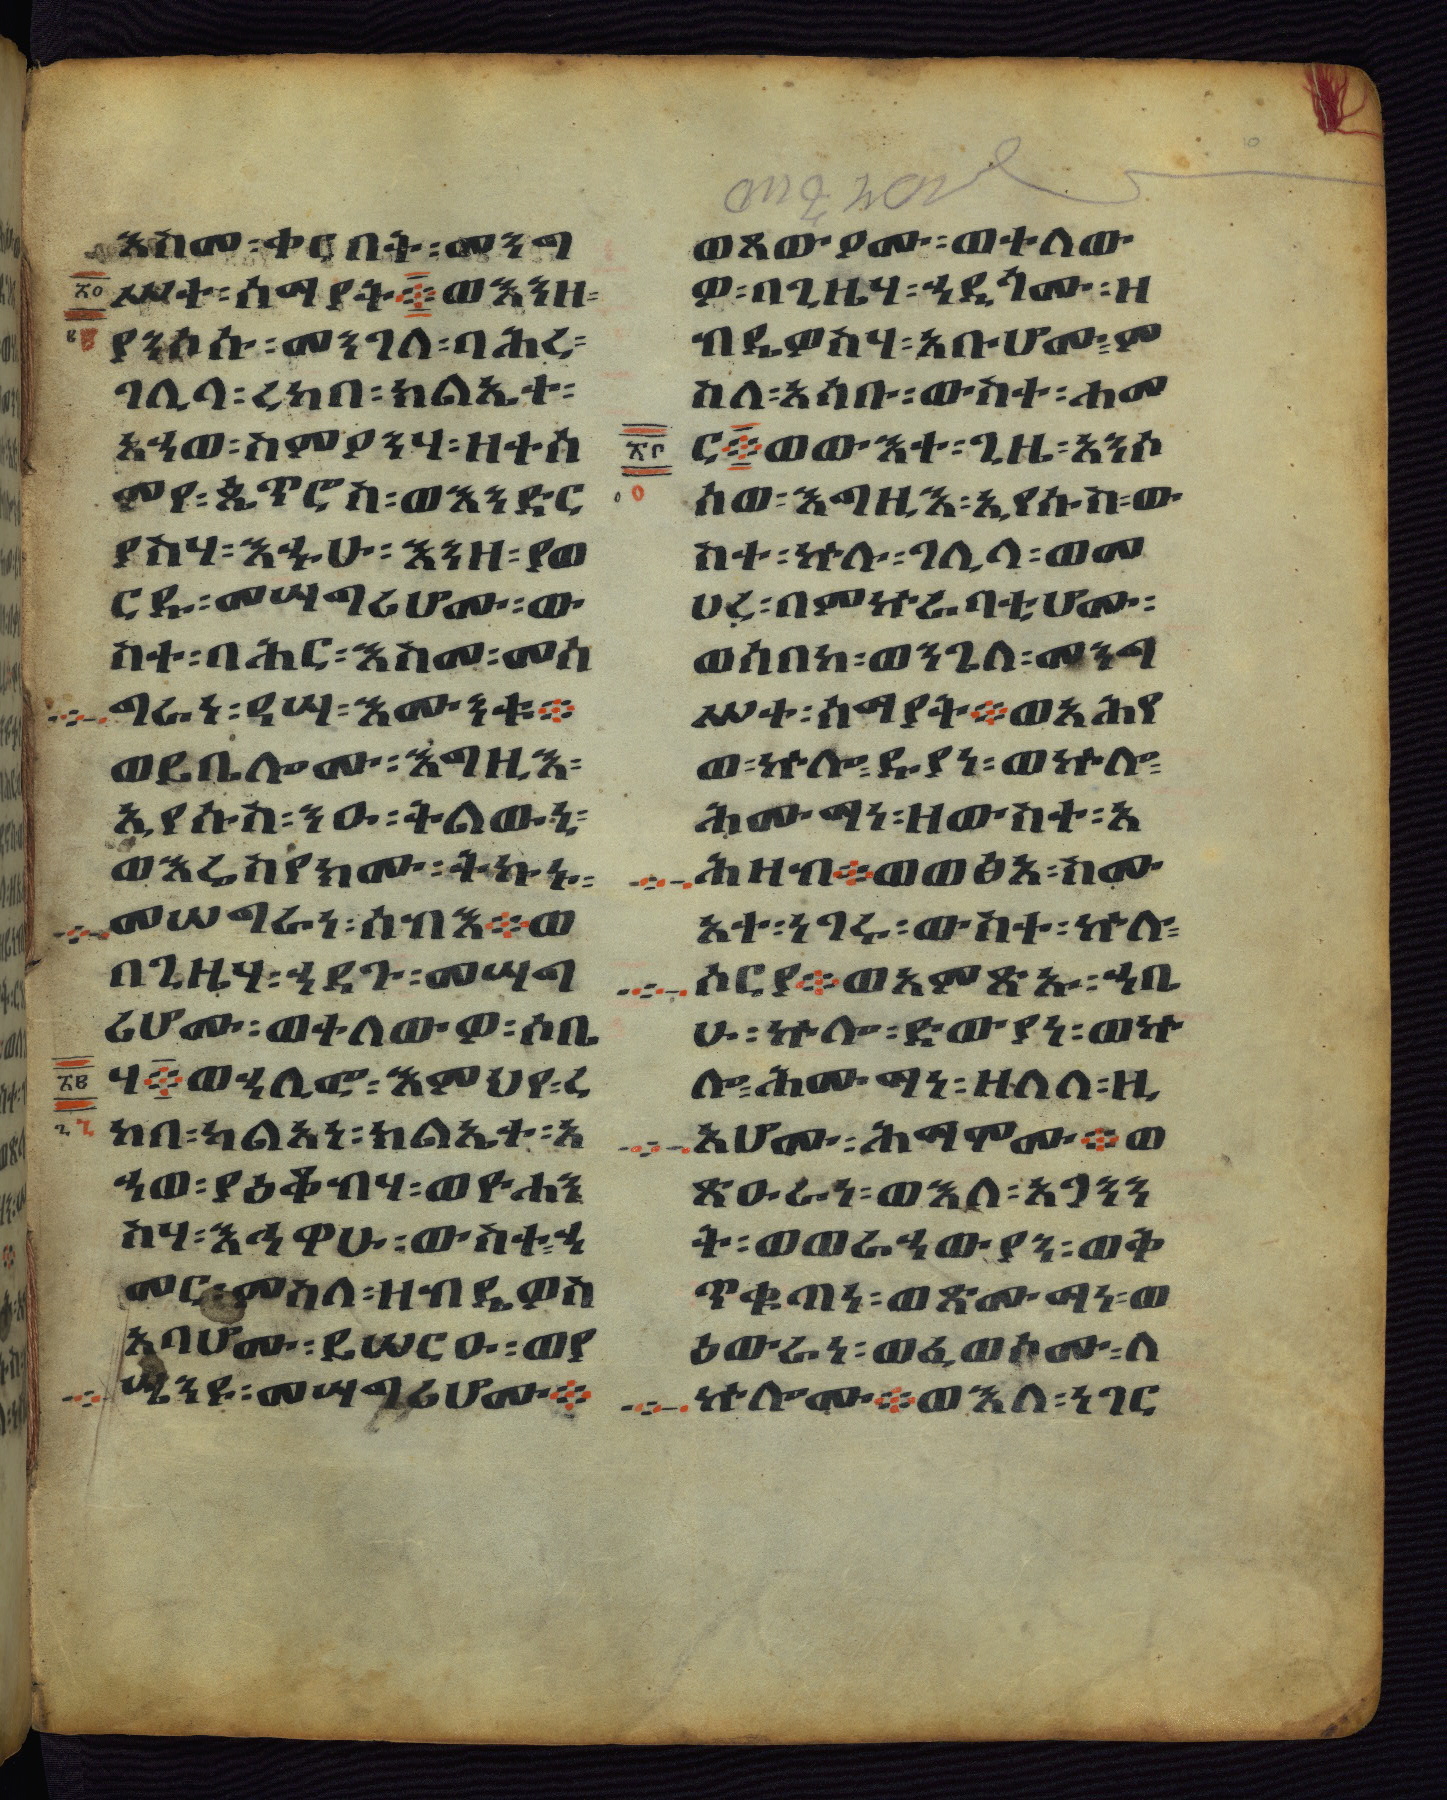 እስመ፡ቀርበት፡መንግ
ሥተ፡ሰማያት፨ወእንዘ፡
ያንሶሱ፡መንገለ፡ባሕረ፡
ገሊላ፡ረከበ፡ክልኤተ፡
አኃወ፡ስምዖንሃ፡ዘተሰ
መየ፡ጴጥሮስ፡ወእንድር
ያስሃ፡እኁሁ፡እንዘ፡ያወ
ርዱ፡መሣግሪሆሙ፡ው
ስተ፡ባሕር፡እስመ፡መሰ
ግራነ፡ዓሣ፡እሙንቱ፨
ወይቤሎሙ፡እግዚእ፡
ኢየሱስ፡ንዑ፡ትልውኒ፡
ወእረስየክሙ፡ትኩኑ፡
መሠግራነ፡ሰብእ፨ወ
በጊዜሃ፡ኃደጉ፡መሣግ
ሪሆሙ፡ወተለውዎ፡ሶቤ
ሃ፨ወኃሊፎ፡እምህየ፡ረ
ከበ፡ካልአነ፡ክልኤተ፡አ
ኃወ፡ያዕቆብሃ፡ወዮሐን
ስሃ፡እኃዋሁ፡ውስተ፡ሐ
መር፡ምስለ፡ዘብዴዎስ
አባሆሙ፡ይሠርዑ፡ወያ
ሤንዩ፡መሣግሪሆሙ፨
ወጸውዖሙ፡ወተለው
ዎ፡በጊዜሃ፡ኃዲጎሙ፡ዘ
ብዴዎስሃ፡አቡሆሙ፡ም
ስለ፡አሳቡ፡ውስተ፡ሐመ
ር፨ወውእተ፡ጊዜ፡አንሶ
ሰወ፡እግዚእ፡ኢየሱስ፡ው
ስተ፡ኵሉ፡ገሊላ፡ወመ
ሀረ፡በምኵራባቲሆሙ፡
ወሰበከ፡ወንጌለ፡መንግ
ሥተ፡ሰማያት፨ወአሕየ
ወ፡ኵሎ፡ዱያነ፡ወኵሎ፡
ሕሙማነ፡ዘውስተ፡አ
ሕዛብ፨ወወፅአ፡ስሙ
አተ፡ነገሩ፡ውስተ፡ኵሉ፡
ሶርያ፨ወአምጽኡ፡ኃቤ
ሁ፡ኵሎ፡ድውያነ፡ወኵ
ሎ፡ሕሙማነ፡ዘለለ፡ዚ
አሆሙ፡ሕማሞሙ፨ወ
ጽዑራነ፡ወእለ፡አጋንን
ት፡ወወራኃውያነ፡ወቅ
ጥቁጣነ፡ወጽሙማነ፡ወ
ዕውራነ፡ወፈወሶሙ፡ለ
ኵሎሙ፨ወእለ፡ነገር